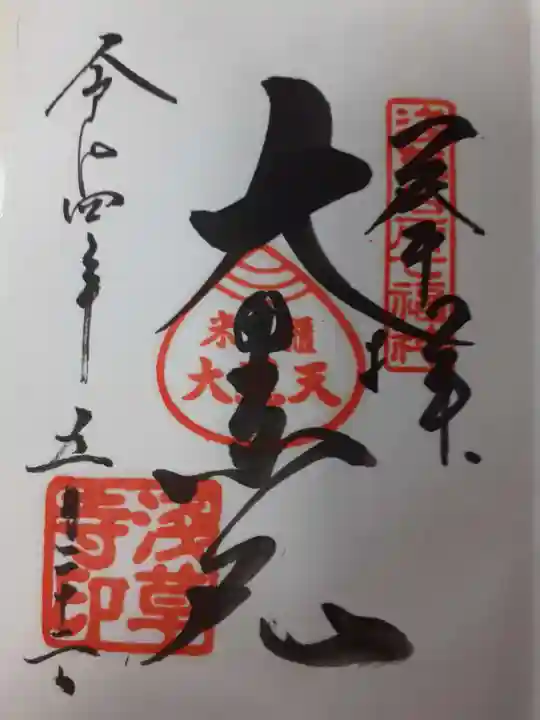 奉拝
浅草名所七福神
大黒天
米櫃
大黒天
令和四年五月二十二日
浅草寺印